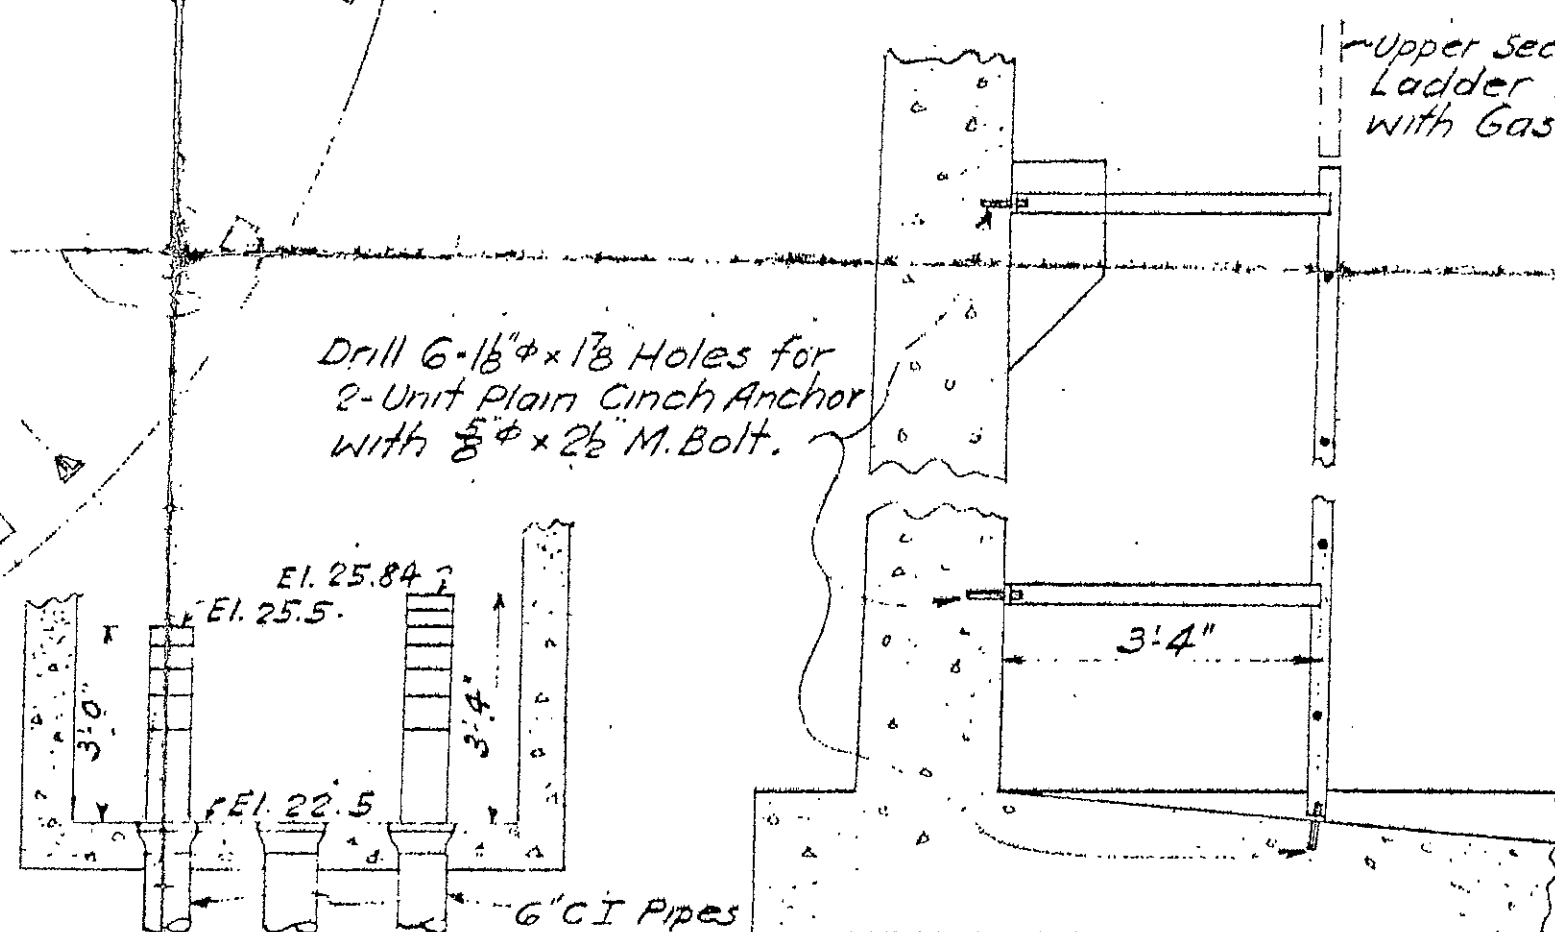 Upper Sec
Ladder
with Gas
Drill 6-1 1/8"φ x 1 7/8 Holes for
2-Unit Plain Cinch Anchor
with 5/8"φ x 2 1/2" M. Bolt.
El. 25.84
El. 25.5.
3'-0"
3'-4"
3'-4"
El. 22.5
6" C I Pipes